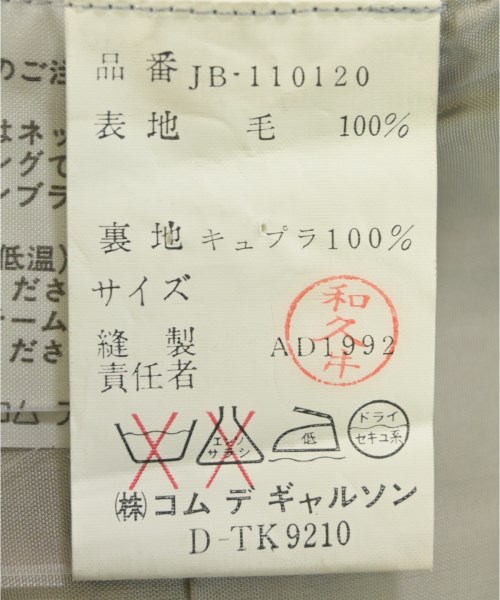 品番 JB-110120
表地 毛 100%
裏地 キュプラ100%
サイズ
縫製 AD1992
責任者
和久井
エンソ
サラシ
低
ドライ
セキユ系
㈱コム デ ギャルソン
D-TK9210
のご注
はネッ
ングで
ンブラ
低温)
ださ
ーム
ださ
コム デ